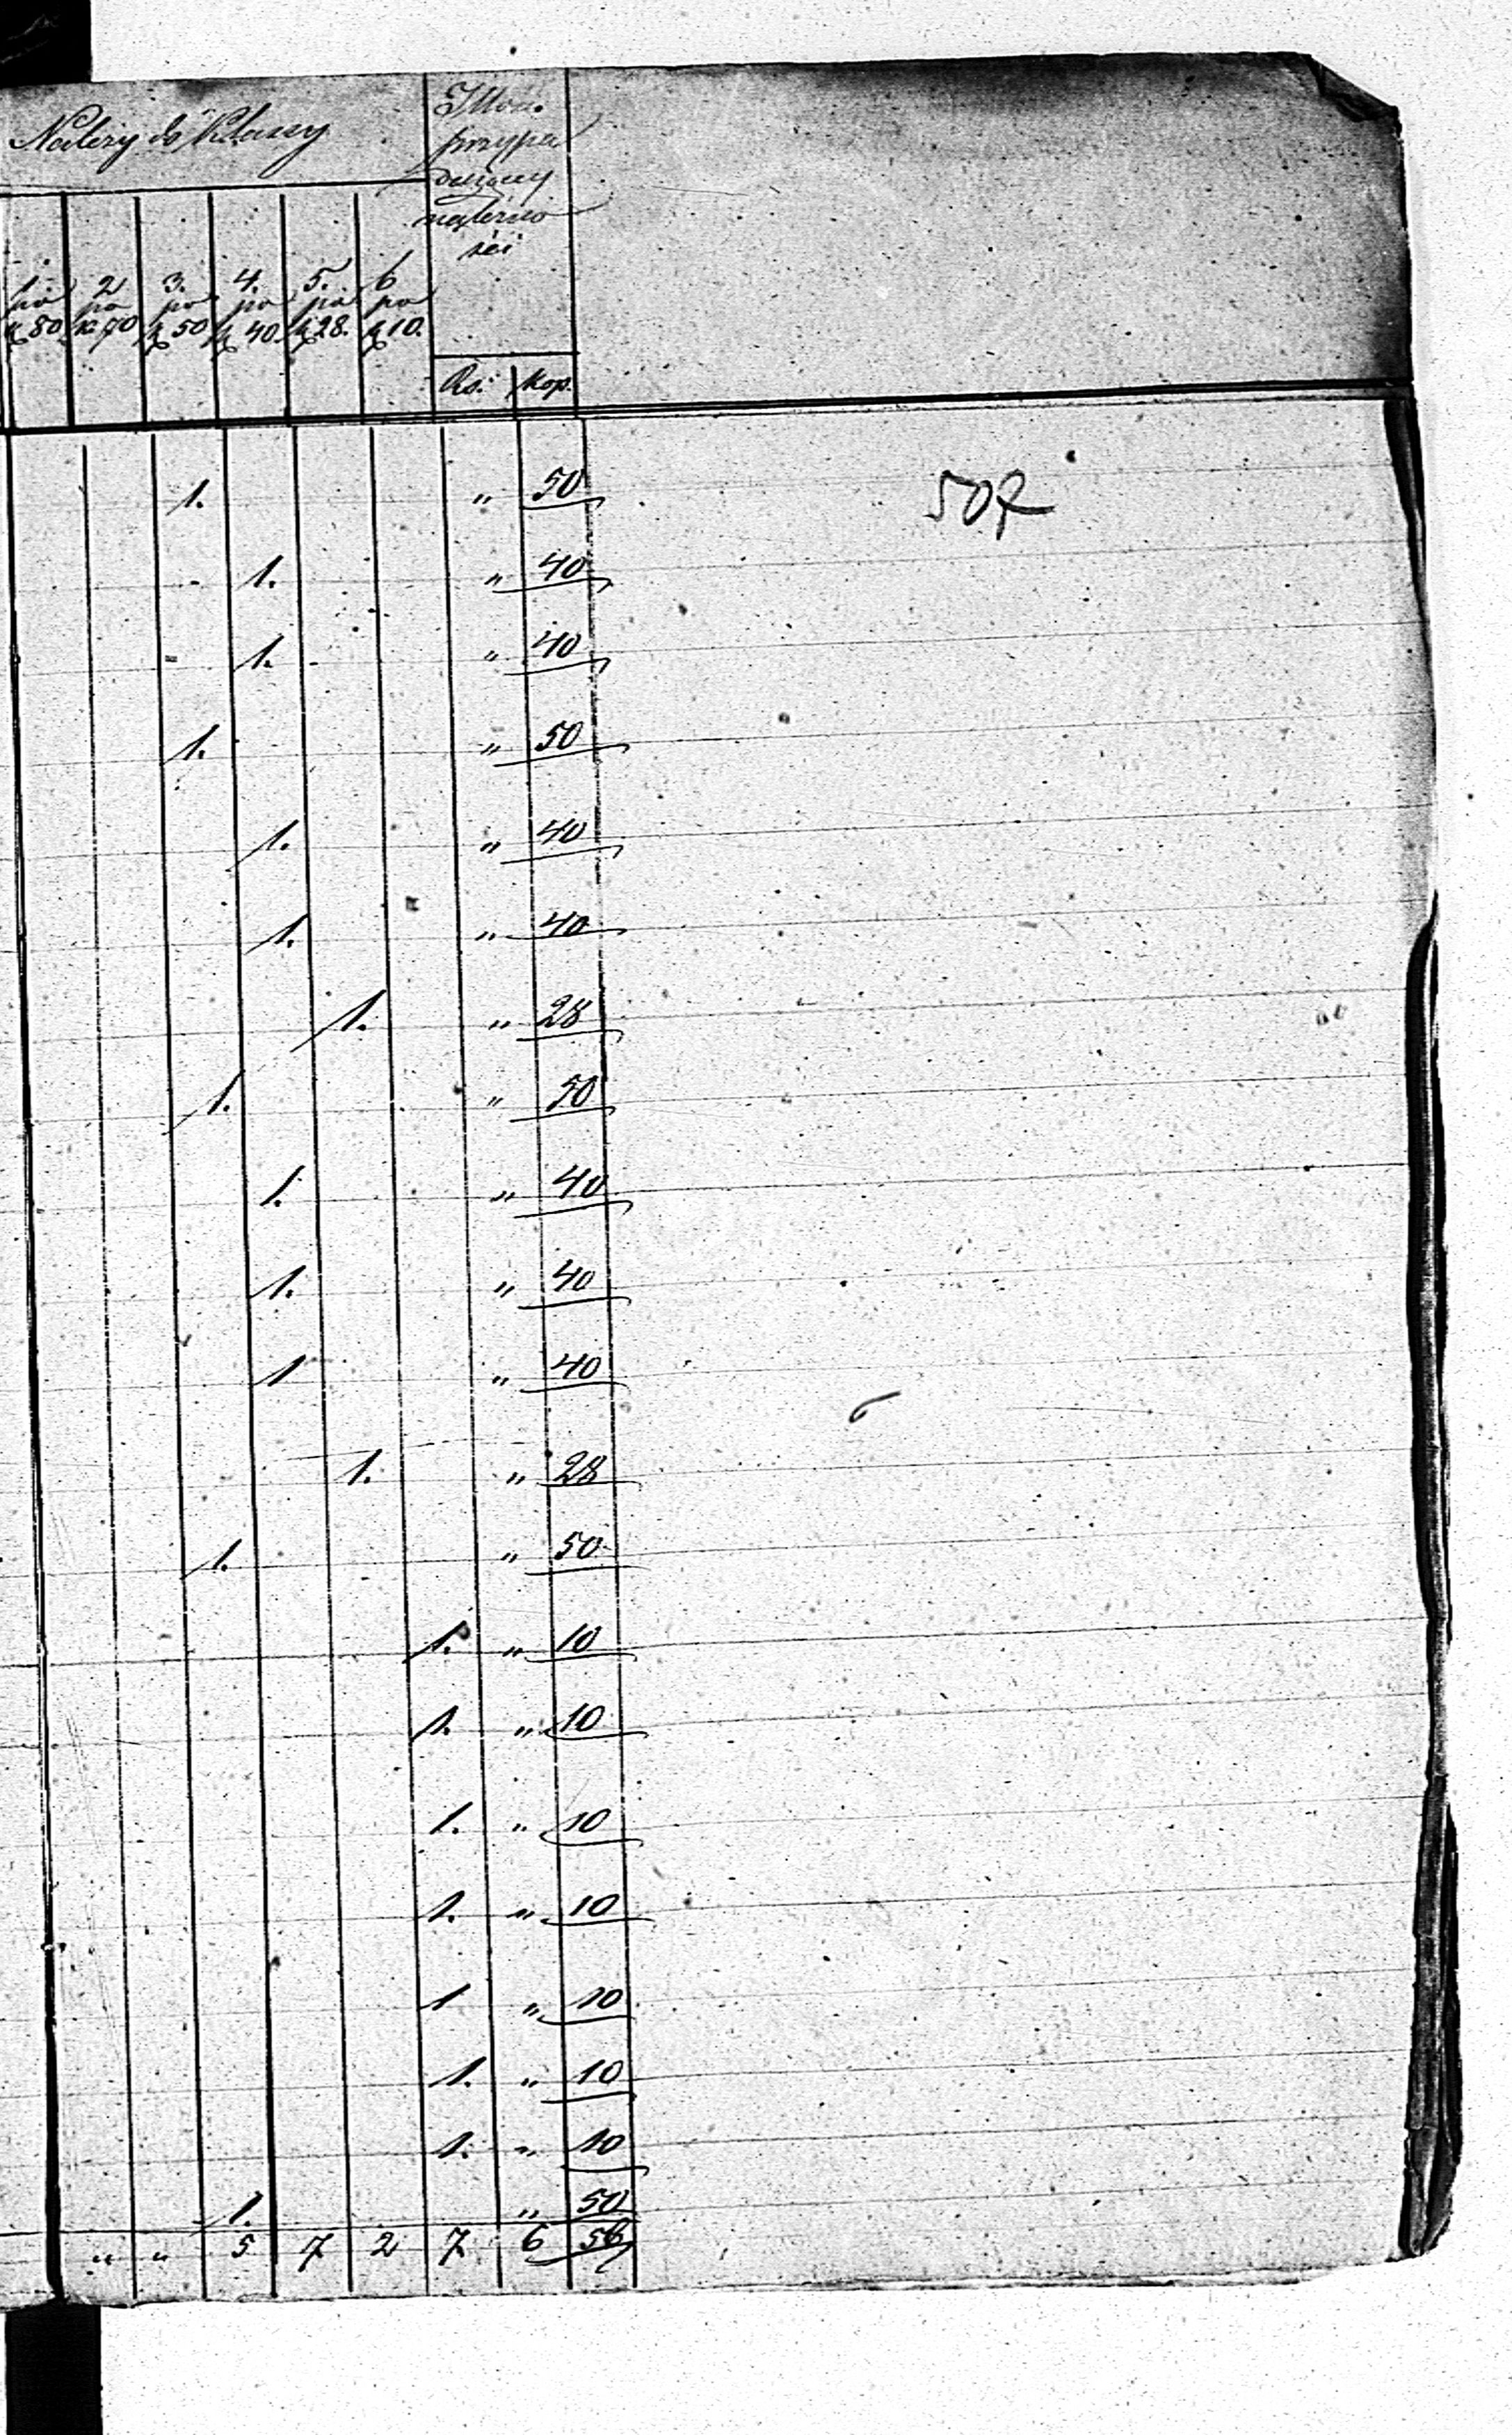 Należy do Klassy
Ilość
przypa
dającey
należno
ści
1. 2 3. 4. 5. 6
po po po po po po
k 80 k 70 k 50 k 40 k 28. k 10.
Rs. Kop.
1. " 50
507
1. " 40
1. " 40
1. " 50
1. " 40
1. " 40
1. " 28
1. " 50
1. " 40
1. " 40
1 " 40
1. " 28
1. " 50
1. " 10
1. " 10
1. " 10
1. " 10
1 " 10
1. " 10
1. " 10
1. " 50
" " 5 7 2 7 6 56